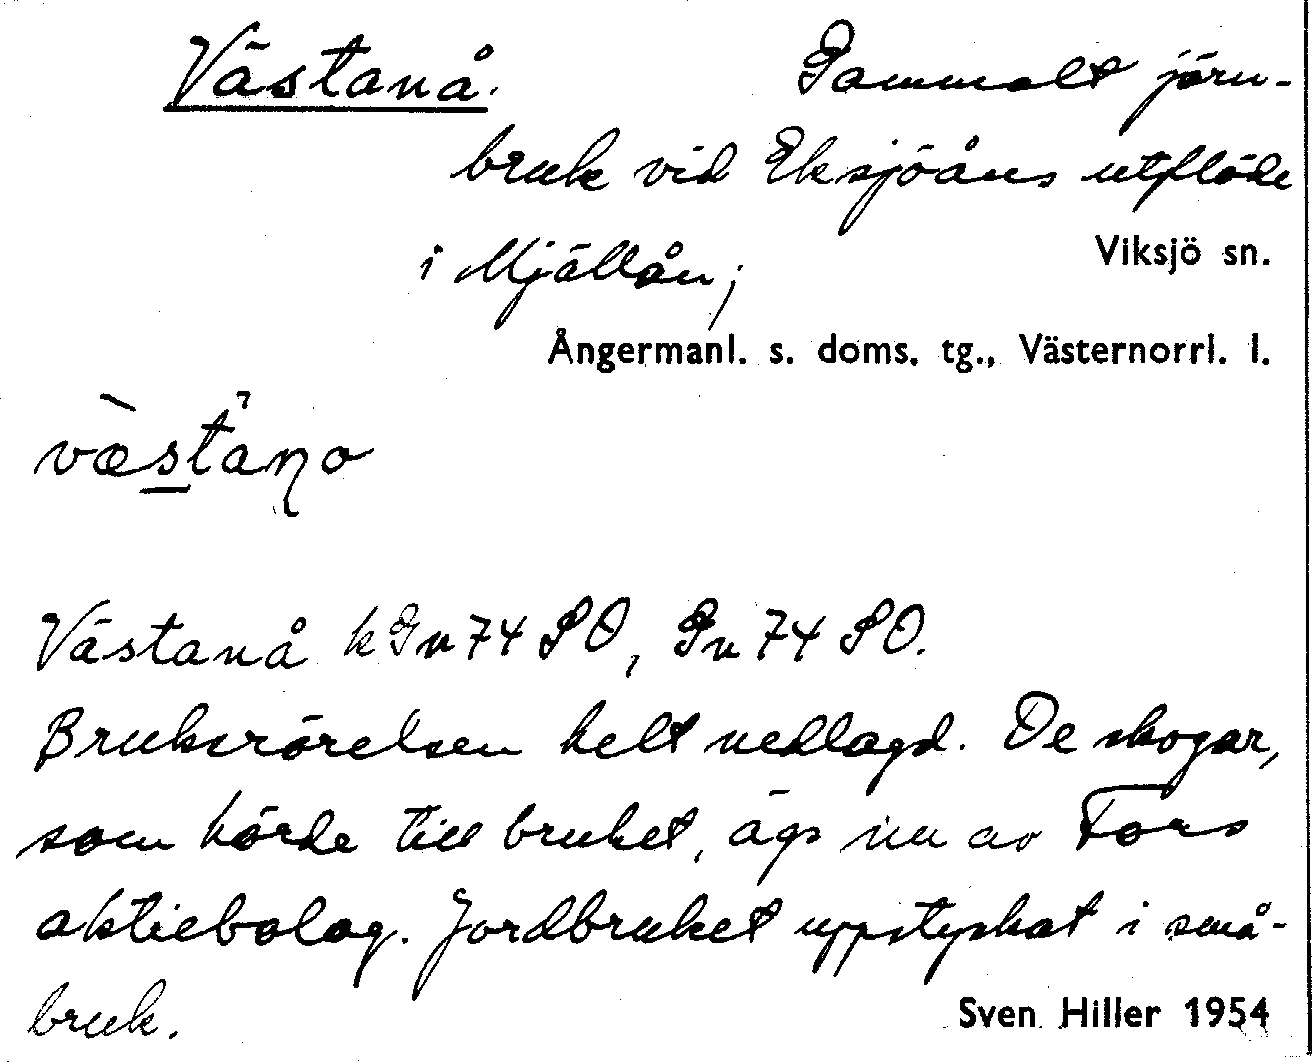 Västanå. Gammalt järn-
bruk vid Eksjöåns utflöde
i Mjällån; Viksjö sn.
Ångermanl. s. doms. tg., Västernorrl. l.
Västanå kGn74 SO, Gn74 SO.
Bruksrörelsen helt nedlagd. De skogar,
som hörde till bruket, ägs nu av Fors
aktiebolag. Jordbruket uppstyckat i små-
bruk. Sven Hiller 1954